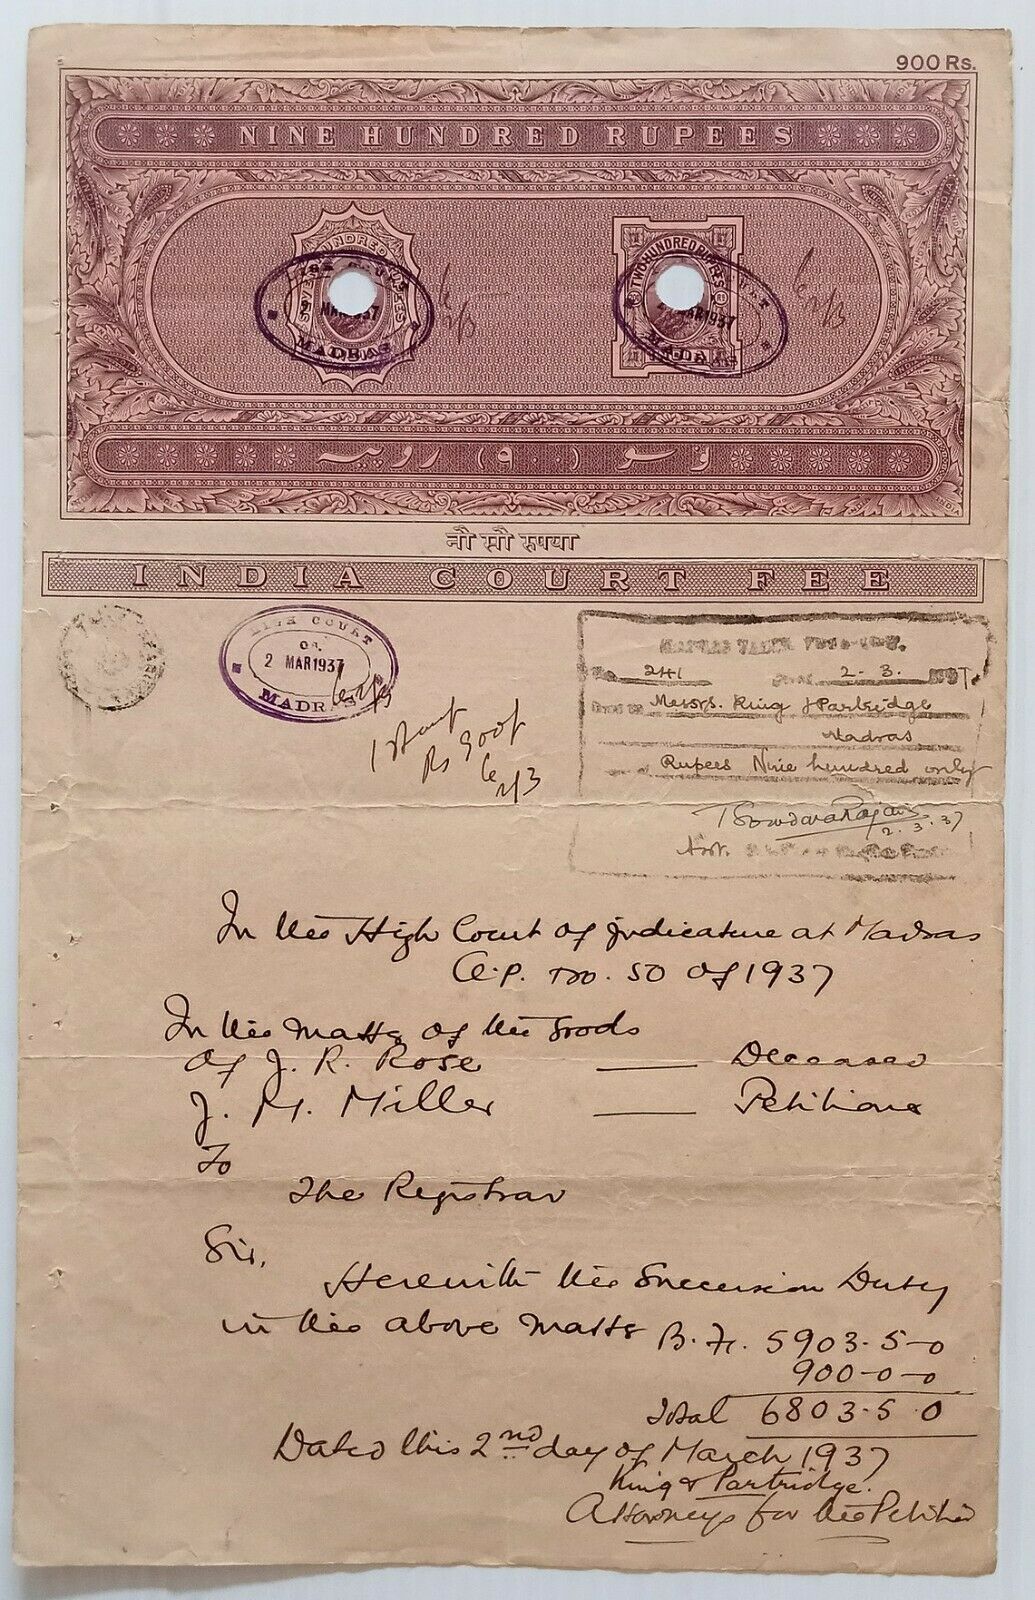 900 Rs.
NINE HUNDRED RUPEES
HUNDRED RUPEES
MAR 1937
MADRAS
2/3
TWO HUNDRED RUPEES
MAR 1937
MADRAS
2/3
نو سو (٩٠٠) روپیہ
नौ सौ रुपया
INDIA COURT FEE
HIGH COURT
2 MAR 1937
MADRAS
2/3
1 Stamp
Rs 900/-
2/3
241 2.3.
Messrs. King & Partridge
Madras
Rupees Nine hundred only
T Sowdararajan
2.3.37
Asst.
In the High Court of Judicature at Madras
O.P. No. 50 of 1937
In the Matter of the Goods
of J. R. Rose — Deceased
J. M. Miller — Petitioner
To
The Registrar
Sir,
Herewith the Succession Duty
in the above matter B. F. 5903-5-0
900-0-0
Total 6803-5-0
Dated this 2nd day of March 1937
King & Partridge.
Attorneys for the Petitioner